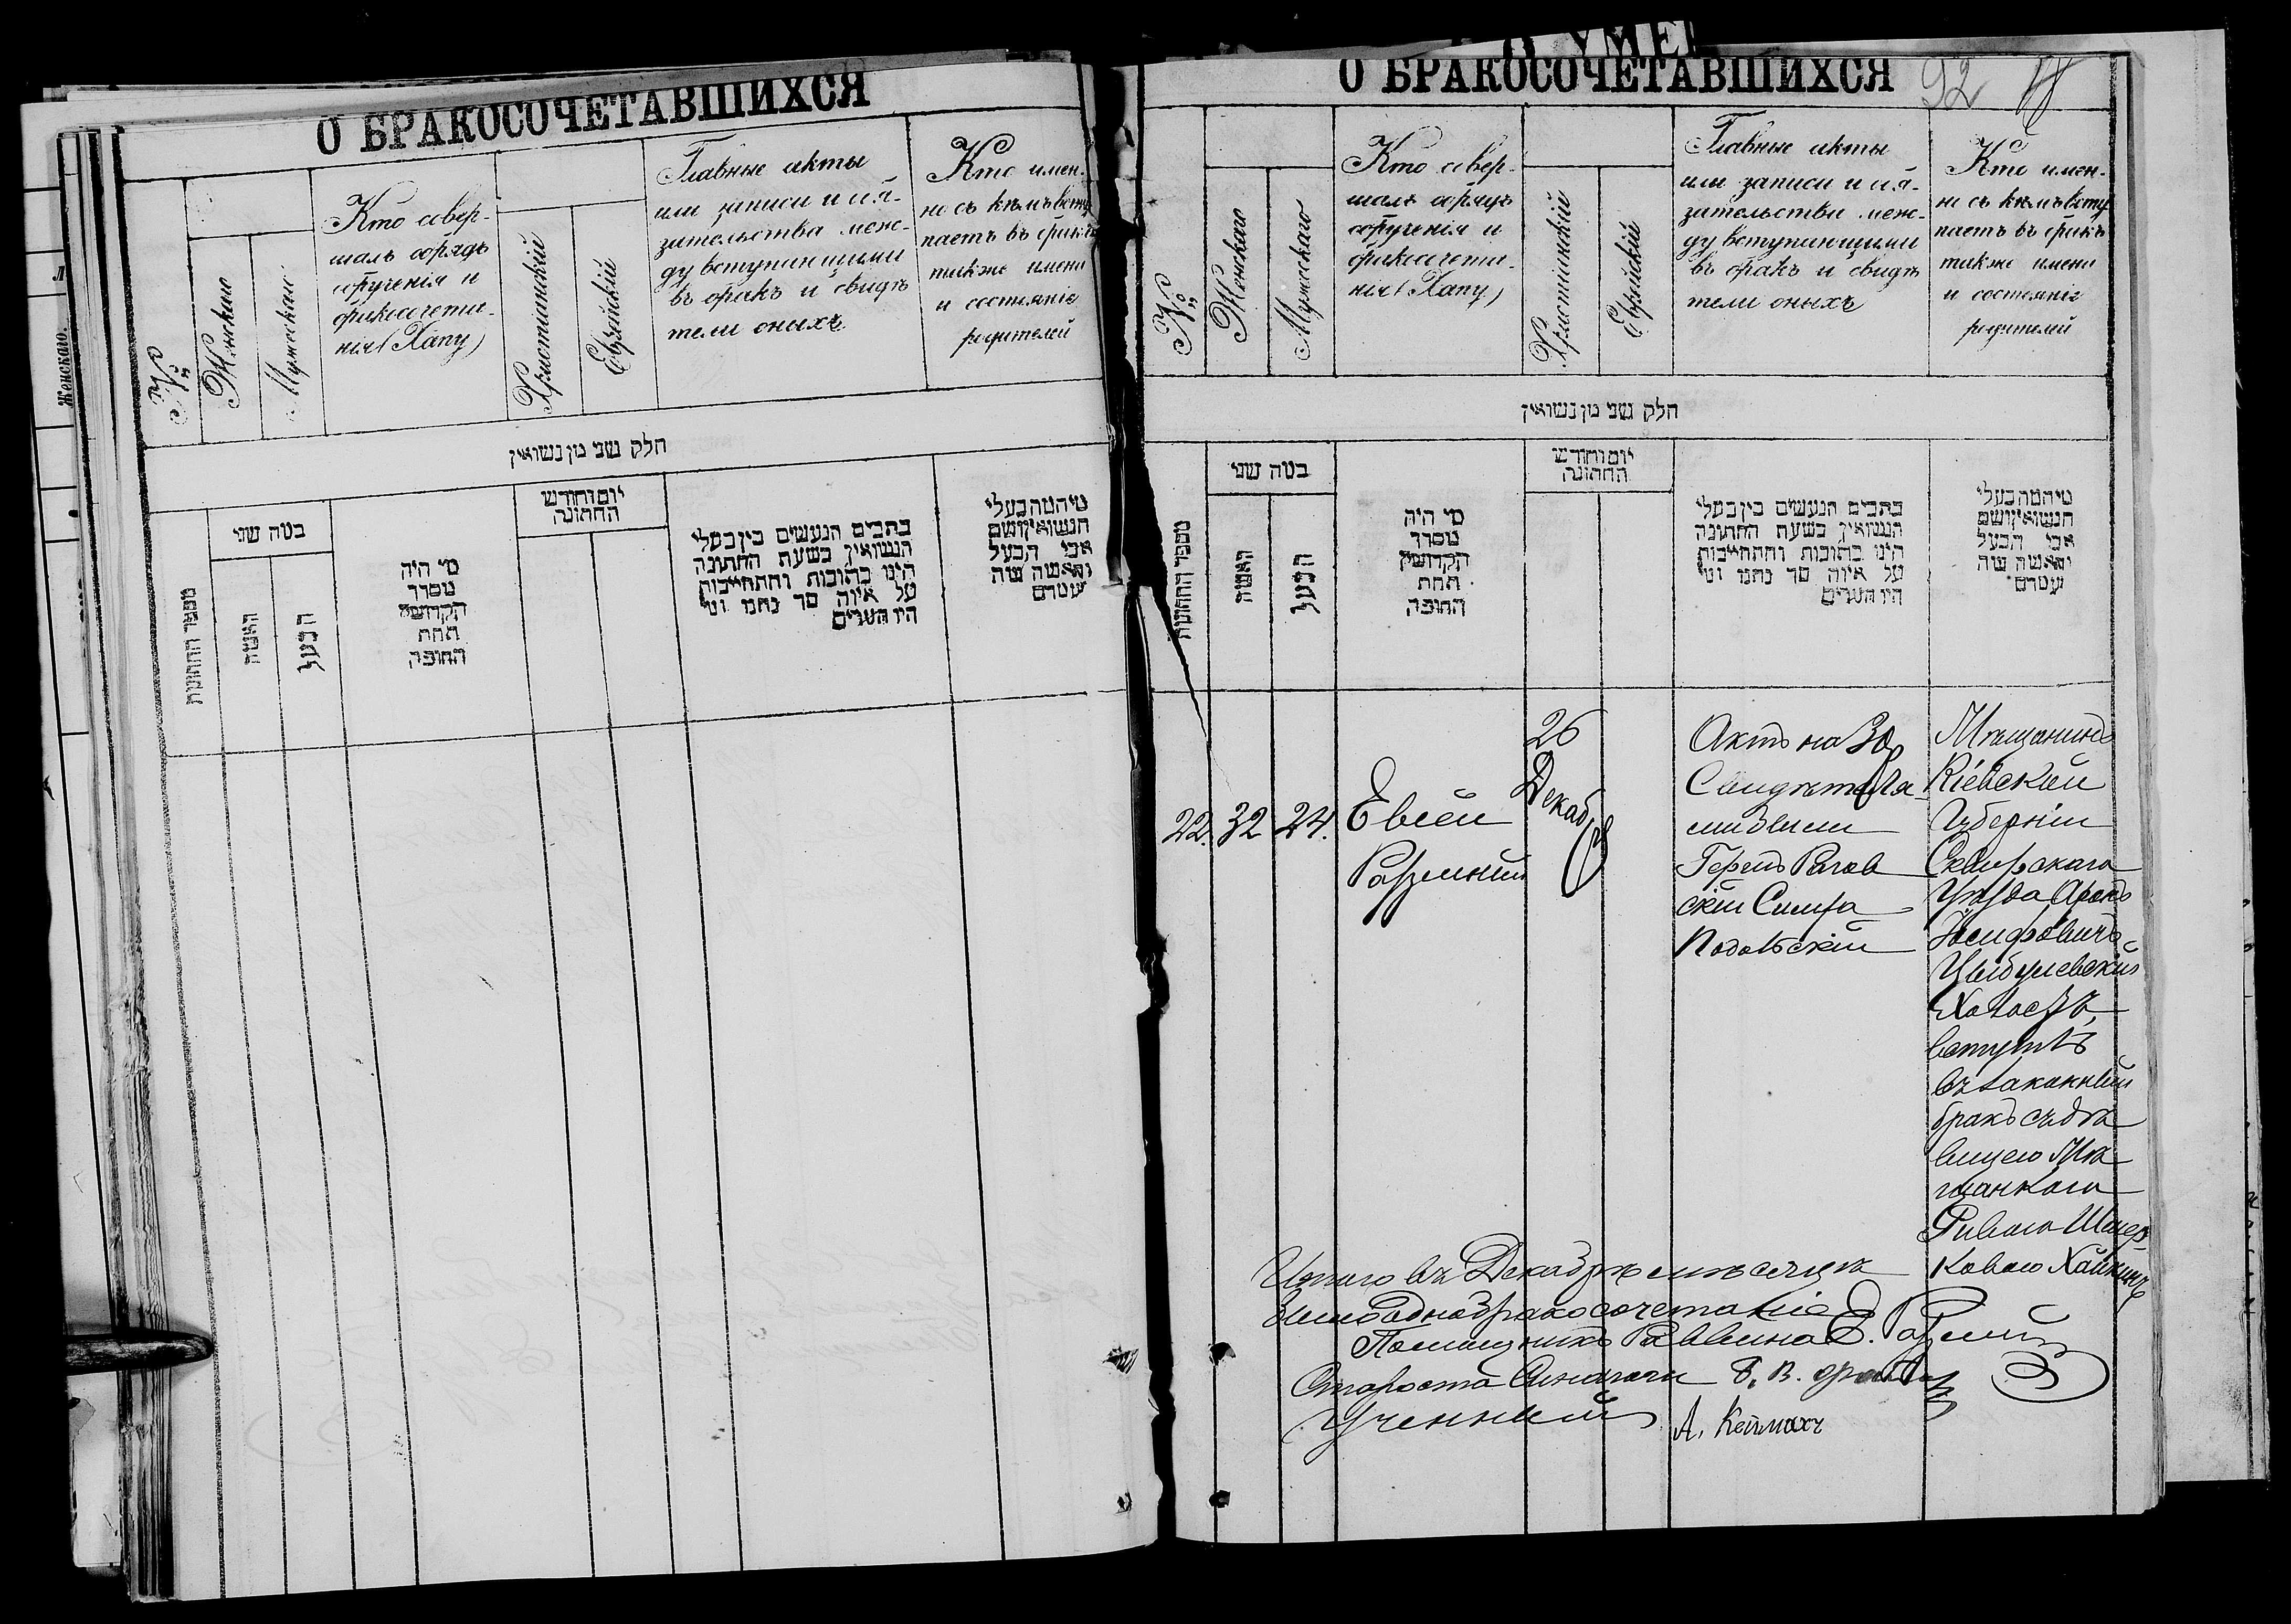 О БРАКОСОЧЕТАВШИХСЯ
№
Женскаго
Мужескаго
Кто совер-
шалъ обрядъ
обрученія и
бракосочета-
нія (Хапу)
Христіанскій
Еврейскій
Главные акты
или записи и обя-
зательства меж-
ду вступающими
въ бракъ и свидѣ
тели оныхъ
Кто имен-
но съ кѣмъ всту
паетъ въ бракъ
также имена
и состояніе
родителей
חלק שני מן נשואין
מספר החתונות
כמה שני
האשה
הבעל
מי היה
מסדר
הקדושין
תחת
החופה
יום וחודש
החתונה
כתבים הנעשים בין בעלי
הנשואין בשעת החתונה
היינו כתובות והתחייבות
על איזה סך נתנו ומי
היו העדים
Женскаго.
О УМЕ
О БРАКОСОЧЕТАВШИХСЯ
92
№
Женскаго
Мужескаго
Кто совер-
шалъ обрядъ
обрученія и
бракосочета-
нія (Хапу)
Христіанскій
Еврейскій
Главные акты
или записи и обя-
зательства меж-
ду вступающими
въ бракъ и свидѣ
тели оныхъ
Кто имен-
но съ кѣмъ всту
паетъ въ бракъ
также имена
и состояніе
родителей
חלק שני מן נשואין
מספר החתונות
כמה שני
האשה
הבעל
מי היה
מסדר
הקדושין
תחת
החופה
יום וחודש
החתונה
כתבים הנעשים בין בעלי
הנשואין בשעת החתונה
היינו כתובות והתחייבות
על איזה סך נתנו ומי
היו העדים
22. 32 24.
Евсей
26
Декаб
Актъ на 30 р
Свидѣтеля-
ми были
Гершъ Рогов
скій Симха
Подольскій
Мѣщанинъ
Кіевской
Губерніи
Сквирскаго
Уѣзда Аронъ
Іосифовичъ
Цыбулевскій
Холостъ,
вступилъ
въ законный
бракъ съ дѣ
вицею Мѣ
щанкою
Ривою Шмер
ковою Хайкинъ
Итого въ Декабрѣ мѣсяцѣ
было одно бракосочетаніе
Помощникъ Раввина Е.
Староста Синагоги
Ученный А.